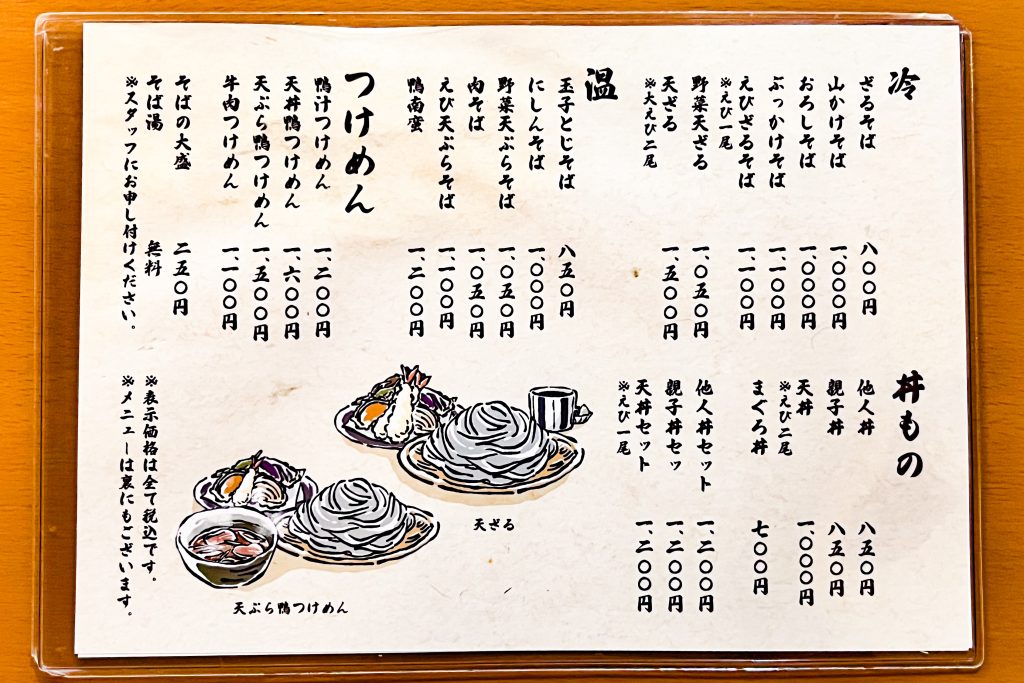 冷
ざるそば 八〇〇円
山かけそば 一、〇〇〇円
おろしそば 一、〇〇〇円
ぶっかけそば 一、一〇〇円
えびざるそば 一、一〇〇円
※えび一尾
野菜天ざる 一、〇五〇円
天ざる 一、五〇〇円
※大えび二尾
温
玉子とじそば 八五〇円
にしんそば 一、〇〇〇円
野菜天ぷらそば 一、〇五〇円
肉そば 一、〇五〇円
えび天ぷらそば 一、一〇〇円
鴨南蛮 一、二〇〇円
つけめん
鴨汁つけめん 一、二〇〇円
天丼鴨つけめん 一、六〇〇円
天ぷら鴨つけめん 一、五〇〇円
牛肉つけめん 一、一〇〇円
そばの大盛 二五〇円
そば湯 無料
※スタッフにお申し付けください。
丼もの
他人丼 八五〇円
親子丼 八五〇円
天丼 一、〇〇〇円
※えび二尾
まぐろ丼 七〇〇円
他人丼セット 一、二〇〇円
親子丼セッ 一、二〇〇円
天丼セット 一、二〇〇円
※えび一尾
天ざる
天ぷら鴨つけめん
※表示価格は全て税込です。
※メニューは裏にもございます。